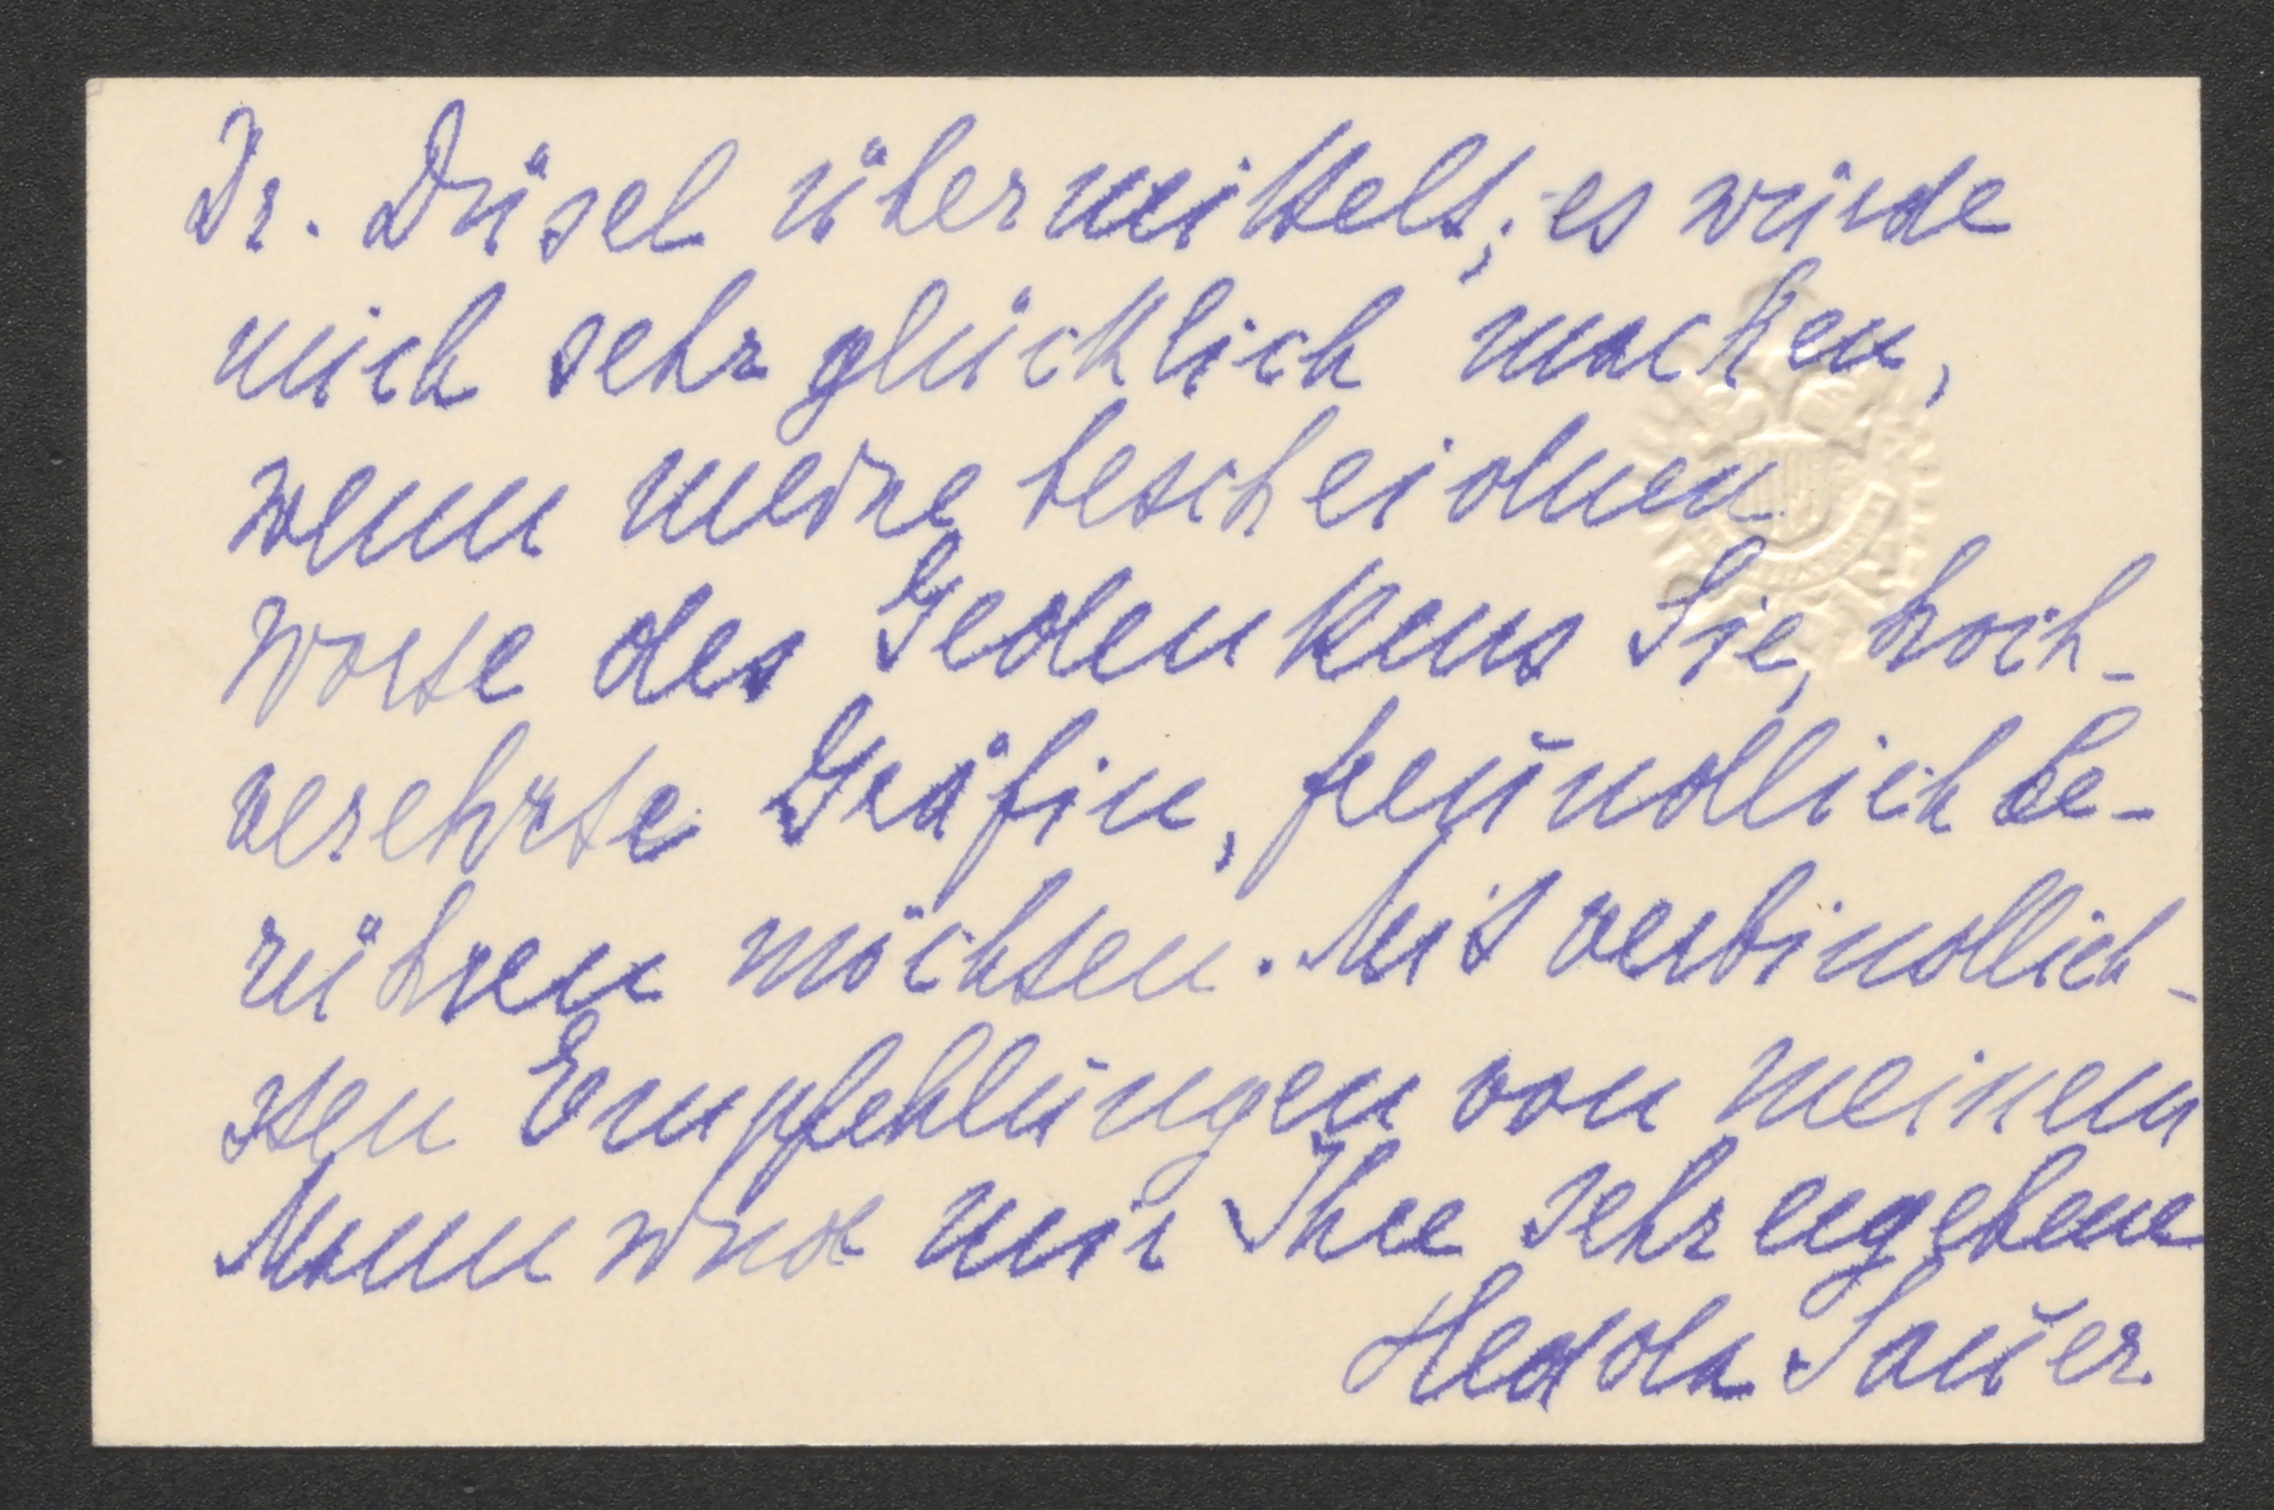 Dr. Düsel übermittelt; es würde
mich sehr glücklich machen,
wenn meine bescheidnen
Worte des Gedenkens Sie, hoch-
verehrte Gräfin, freundlich be-
rühren möchten. Mit verbindlich-
sten Empfehlungen von meinem
Mann und mir Ihre sehr ergebene
Hedda Sauer